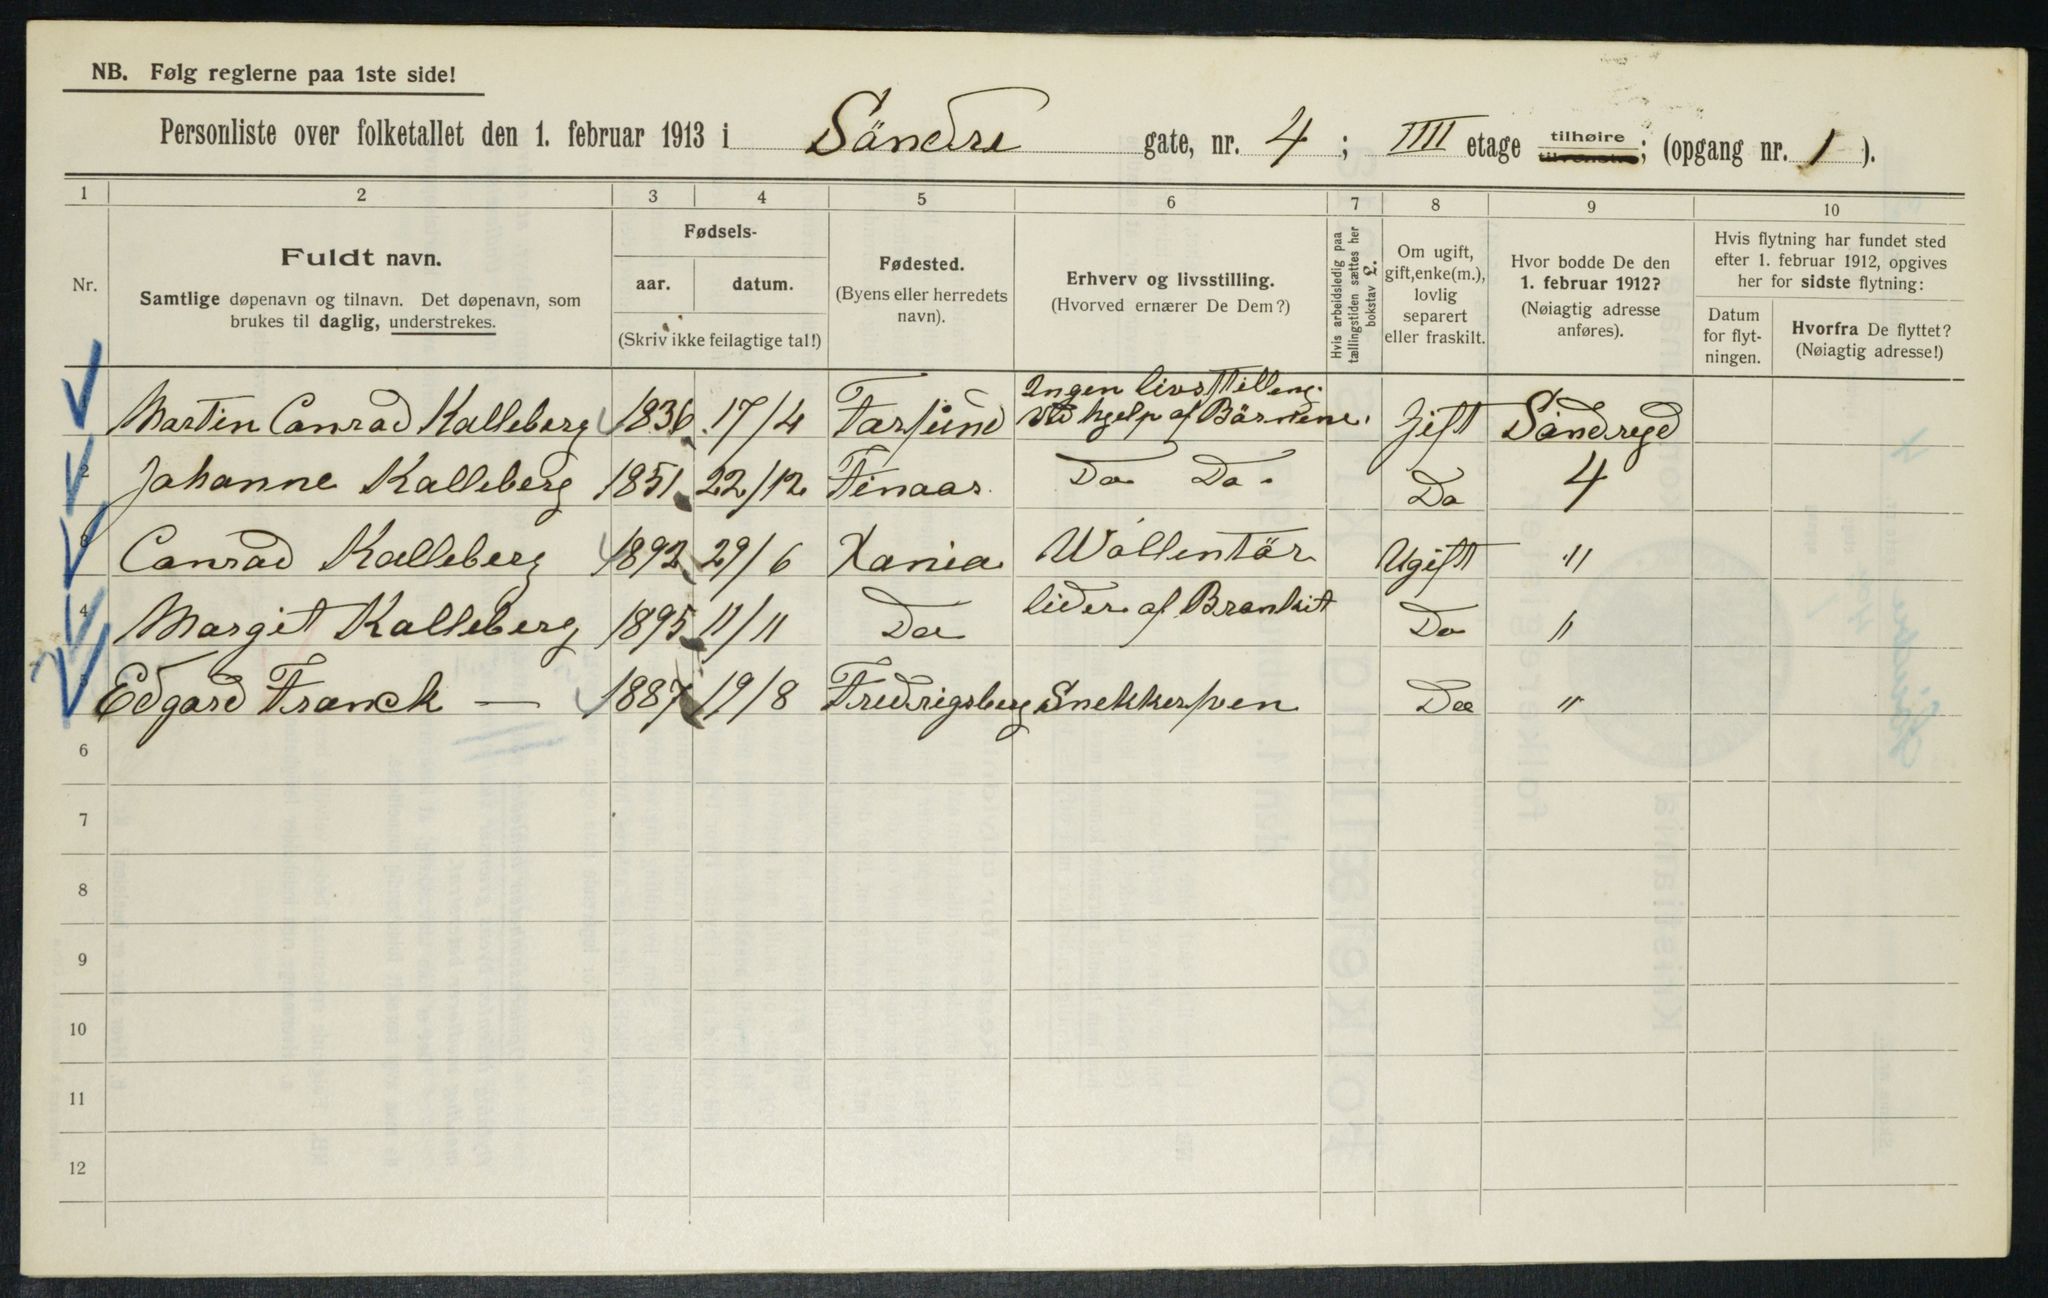 NB. Følg reglerne paa 1ste side!
Personliste over folketallet den 1. februar 1913 i Söndre gate, nr. 4 ; IIII etage tilhøire tilvenstre; (opgang nr. 1 ).
1 2 3 4 5 6 7 8 9 10
Nr.
Fuldt navn.
Samtlige døpenavn og tilnavn. Det døpenavn, som
brukes til daglig, understrekes.
Fødsels-
aar. datum.
(Skriv ikke feilagtige tal!)
Fødested.
(Byens eller herredets
navn).
Erhverv og livsstilling.
(Hvorved ernærer De Dem?)
Hvis arbeidsledig paa
tællingstiden sættes her
bokstav L.
Om ugift,
gift, enke(m.),
lovlig
separert
eller fraskilt.
Hvor bodde De den
1. februar 1912?
(Nøiagtig adresse
anføres).
Hvis flytning har fundet sted
efter 1. februar 1912, opgives
her for sidste flytning:
Datum
for flyt-
ningen.
Hvorfra De flyttet?
(Nøiagtig adresse!)
Martin Conrad Kalleberg 1836 17/4 Farsund Ingen livsstilling. Ved hjelp af Börnene. Gift Söndregd
2 Johanne Kalleberg 1851 22/12 Finaas Do Do. Do 4
3 Conrad Kalleberg 1892 29/6 Xania Wollentör Ugift "
4 Margit Kalleberg 1895 11/11 Do lider af Bronkit Do "
5 Edgard Franck — 1887 19/8 Fredrigsberg Snekkersven Do "
6
7
8
9
10
11
12